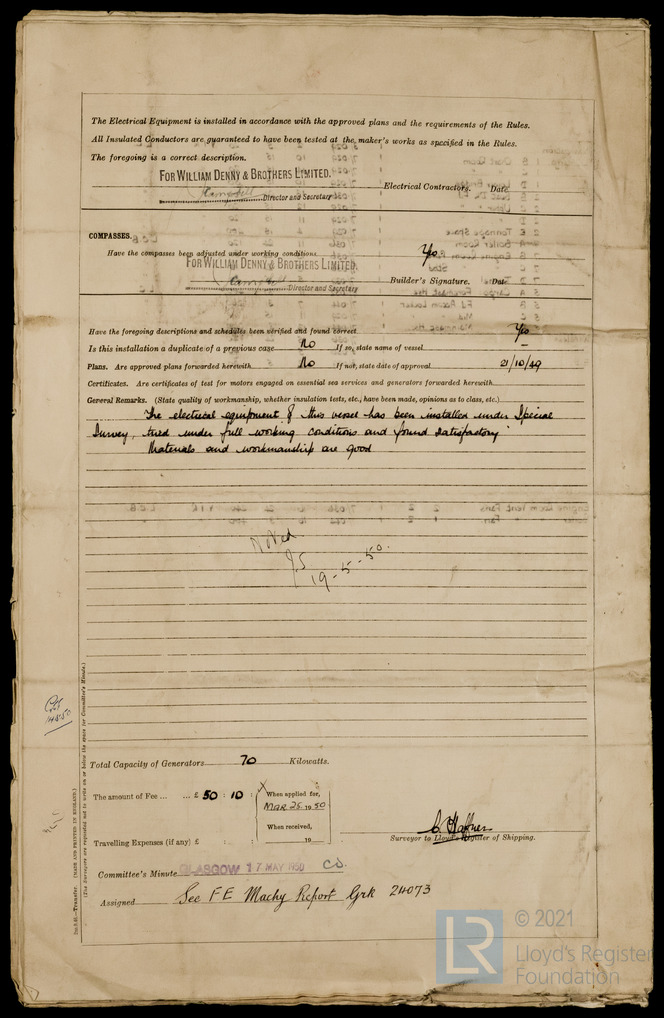 The Electrical Equipment is installed in accordance with the approved plans and the requirements of the Rules.
All Insulated Conductors are guaranteed to have been tested at the maker's works as specified in the Rules.
The foregoing is a correct description.
FOR WILLIAM DENNY & BROTHERS LIMITED.
Director and Secretary Electrical Contractors. Date
COMPASSES.
Have the compasses been adjusted under working conditions Yes
FOR WILLIAM DENNY & BROTHERS LIMITED.
Director and Secretary Builder's Signature. Date
Have the foregoing descriptions and schedules been verified and found correct Yes
Is this installation a duplicate of a previous case No If so, state name of vessel —
Plans. Are approved plans forwarded herewith No If not, state date of approval 21/10/49
Certificates. Are certificates of test for motors engaged on essential sea services and generators forwarded herewith
General Remarks. (State quality of workmanship, whether insulation tests, etc., have been made, opinions as to class, etc.)
The electrical equipment of this vessel has been installed under Special
Survey, tried under full working conditions and found satisfactory
Materials and workmanship are good
Noted
J.S
19-5-50.
Total Capacity of Generators 70 Kilowatts.
The amount of Fee ... ... £ 50 : 10 : When applied for,
MAR 25 19 50
When received,
Travelling Expenses (if any) £ : : 19
Surveyor to Lloyd's Register of Shipping.
Committee's Minute GLASGOW 17 MAY 1950
Assigned See F E Machy Report Grk 24073
(MADE AND PRINTED IN ENGLAND.)
(The Surveyors are requested not to write on or below the space for Committee's Minute.)
LR
© 2021
Lloyd's Register
Foundation